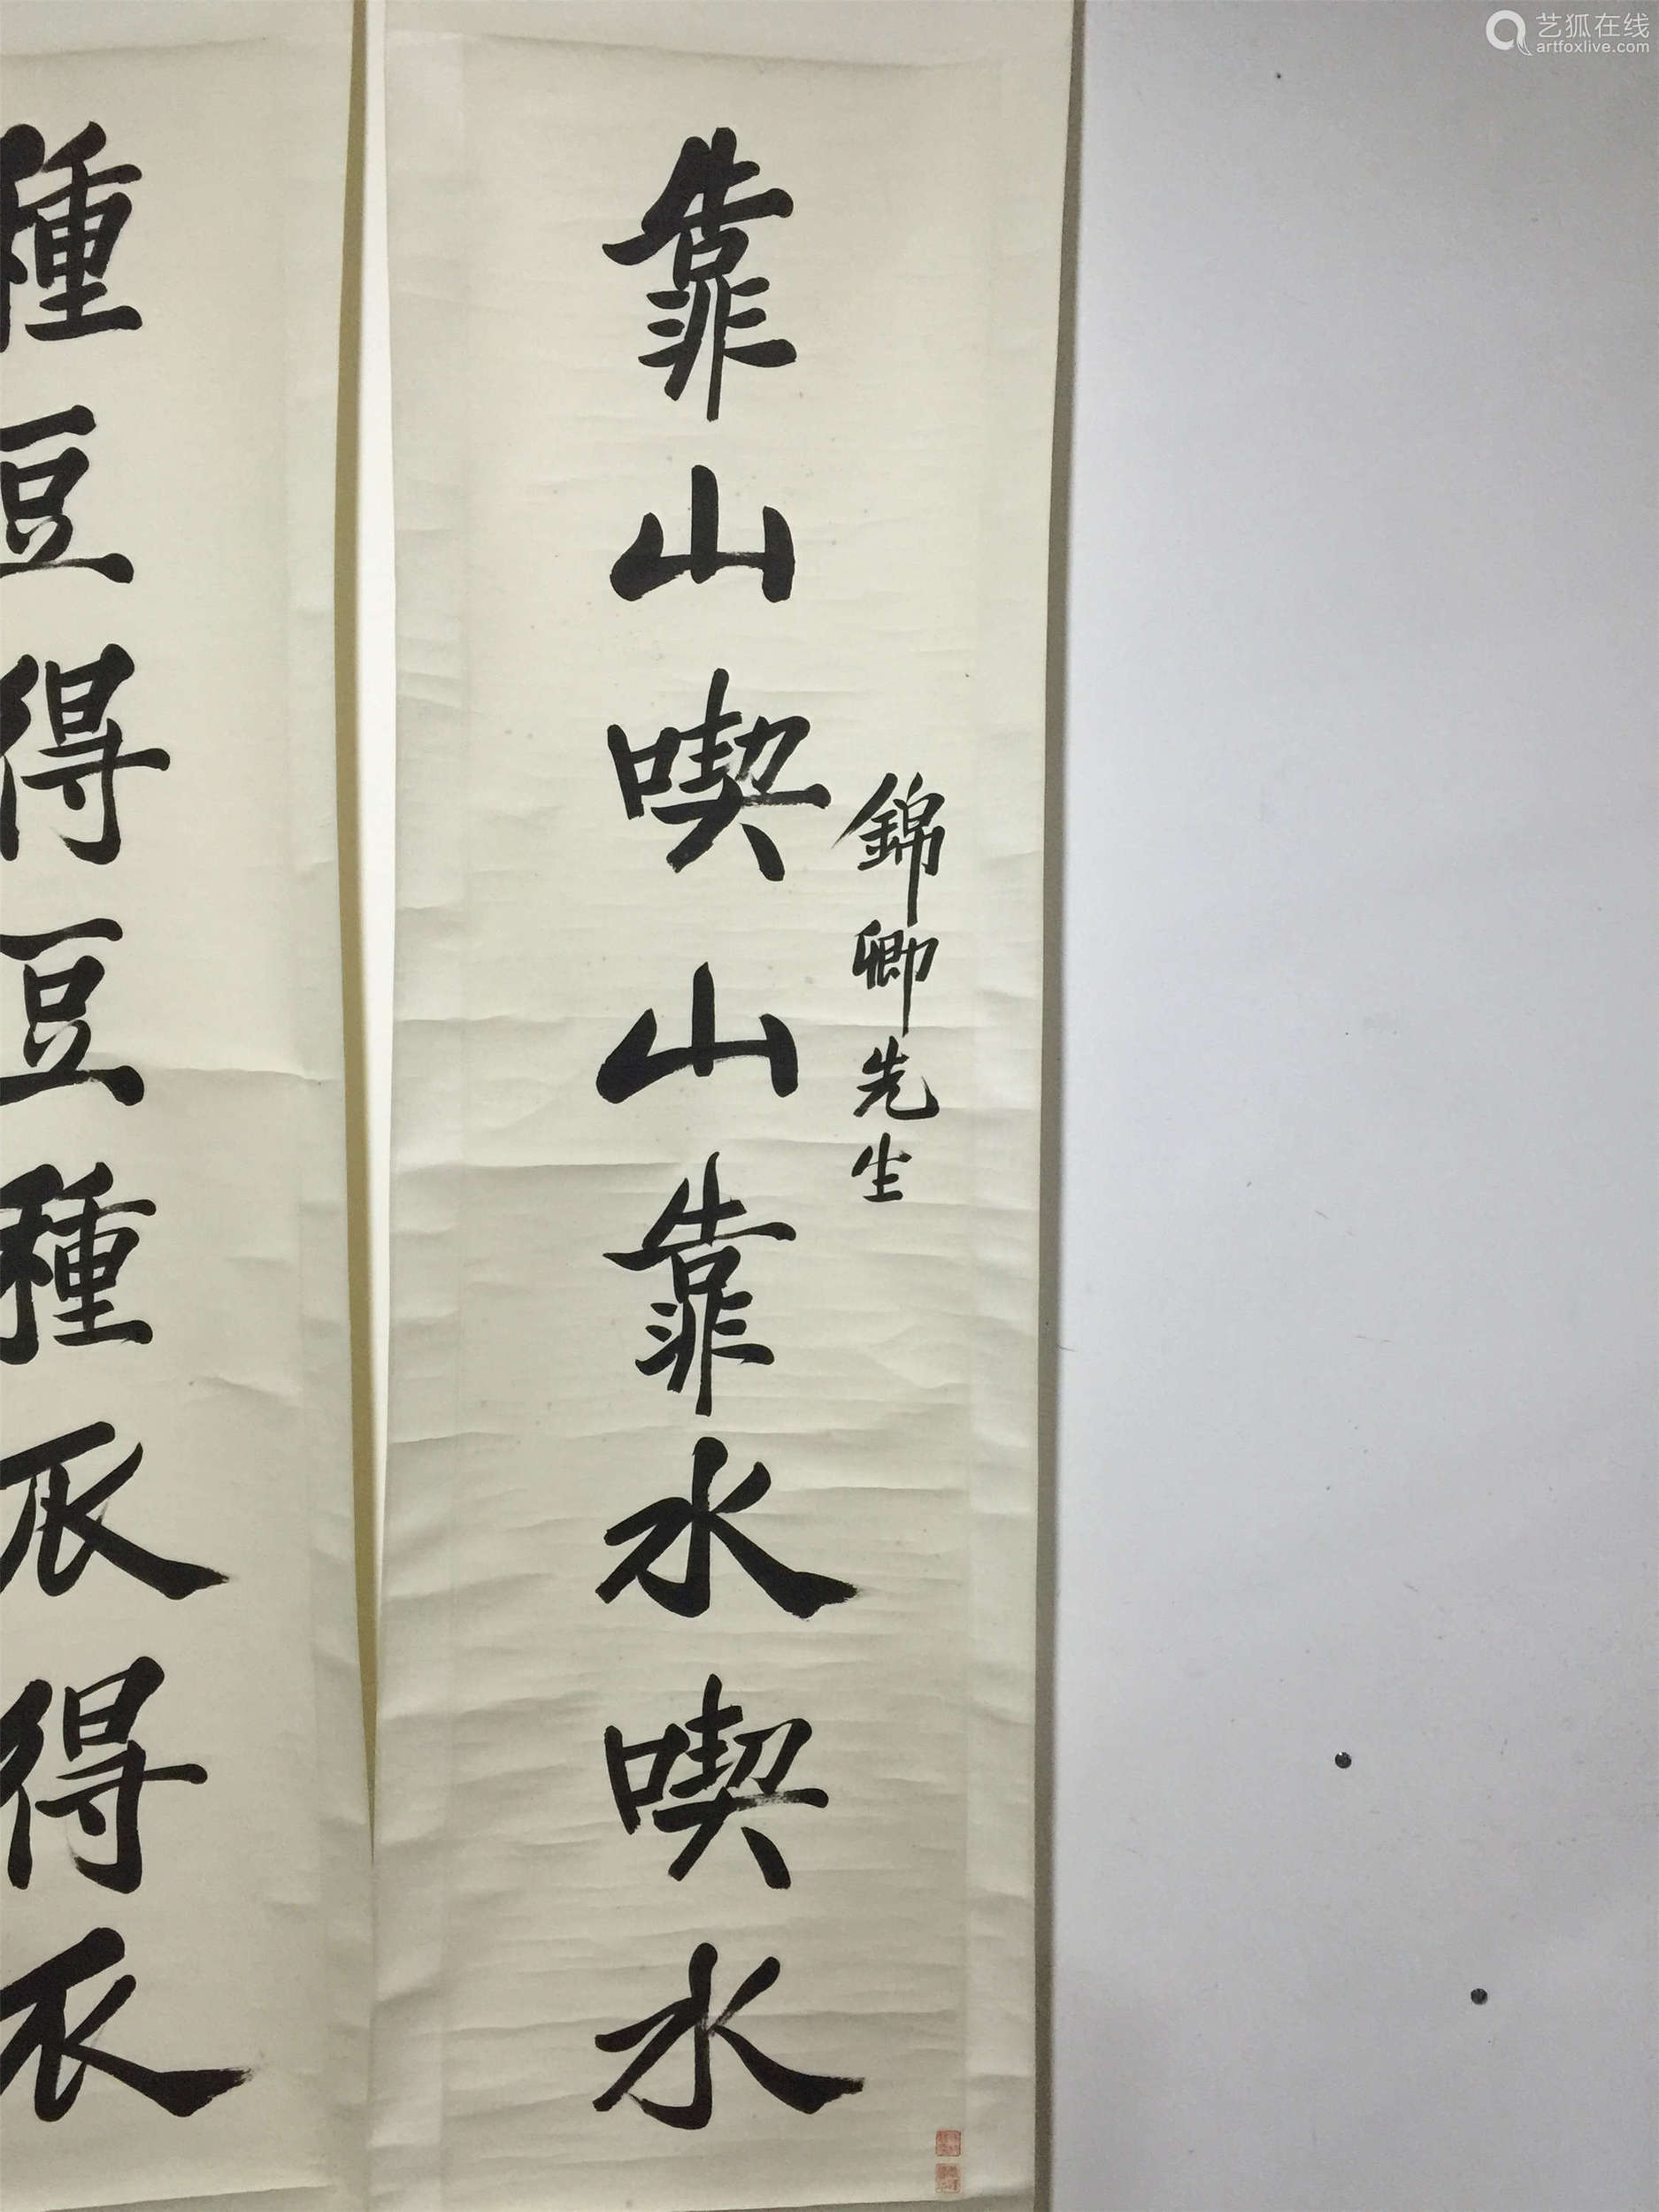 靠山喫山靠水喫水
錦卿先生
種豆得豆種衣得衣
艺狐在线
artfoxlive.com